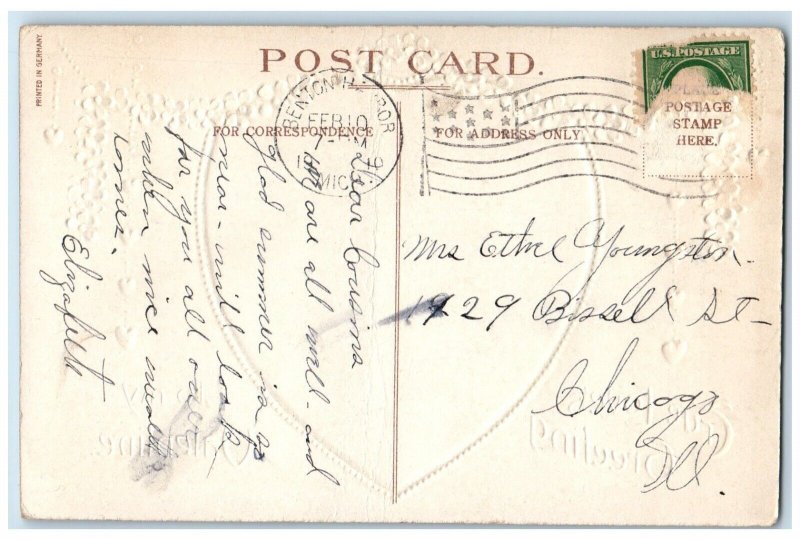 PRINTED IN GERMANY.
POST CARD.
FOR CORRESPONDENCE
FOR ADDRESS ONLY
BENTON HARBOR
FEB 10
7- PM
MICH.
U.S. POSTAGE
POSTAGE
STAMP
HERE.
Dear Cousins
We are all well - and
glad summer is so
near - will look
for you all over
when nice weather
comes.
Elizabeth
Mrs Ethel Youngston.
1929 Bissell St-
Chicago
Ill.
To my
Valentine
Greeting